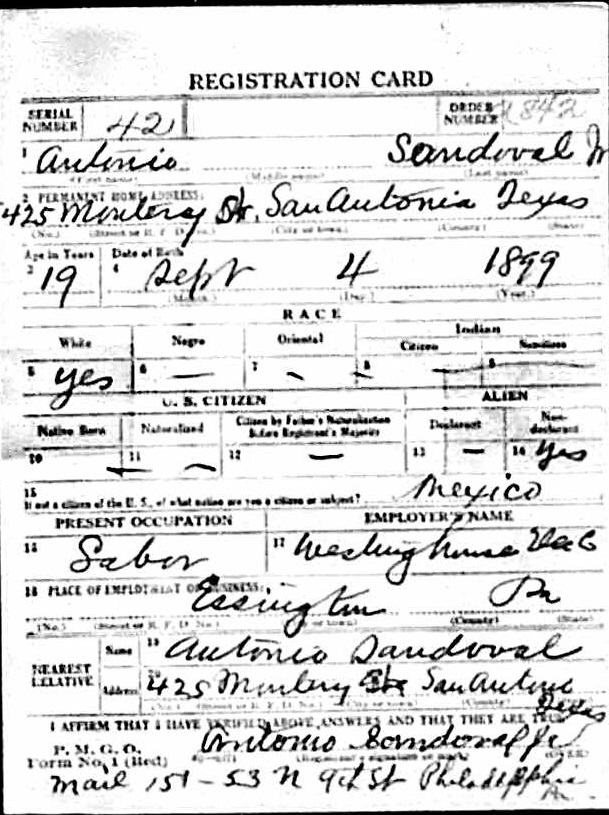 REGISTRATION CARD
SERIAL NUMBER 421 ORDER NUMBER 1842
1 Antonio Sandoval Jr
(First name) (Middle name) (Last name)
2 PERMANENT HOME ADDRESS:
425 Monterey St. San Antonio Texas
(No.) (Street or R. F. D. No.) (City or town) (County) (State)
Age in Years Date of Birth
3 19 4 Sept 4 1899
(Month.) (Day.) (Year.)
RACE
White Negro Oriental Indian
Citizen Noncitizen
5 yes 6 — 7 — 8 — 9 —
U. S. CITIZEN ALIEN
Native Born Naturalized Citizen by Father's Naturalization Before Registrant's Majority Declarant Non-declarant
10 — 11 — 12 — 13 — 14 yes
15
If not a citizen of the U. S., of what nation are you a citizen or subject? Mexico
PRESENT OCCUPATION EMPLOYER'S NAME
16 Labor 17 Westinghouse
18 PLACE OF EMPLOYMENT OR BUSINESS:
Essington Pa
(No.) (Street or R. F. D. No.) (City or town) (County) (State)
NEAREST RELATIVE Name 19 Antonio Sandoval
Address 20 425 Monterey St San Antonio Texas
(No.) (Street or R. F. D. No.) (City or town) (County)
I AFFIRM THAT I HAVE VERIFIED ABOVE ANSWERS AND THAT THEY ARE TRUE
P. M. G. O.
Form No. 1 (Red) Antonio Sandoval Jr
(Registrant's signature or mark) (OVER)
Mail 151-53 N 9th St Philadelphia Pa.